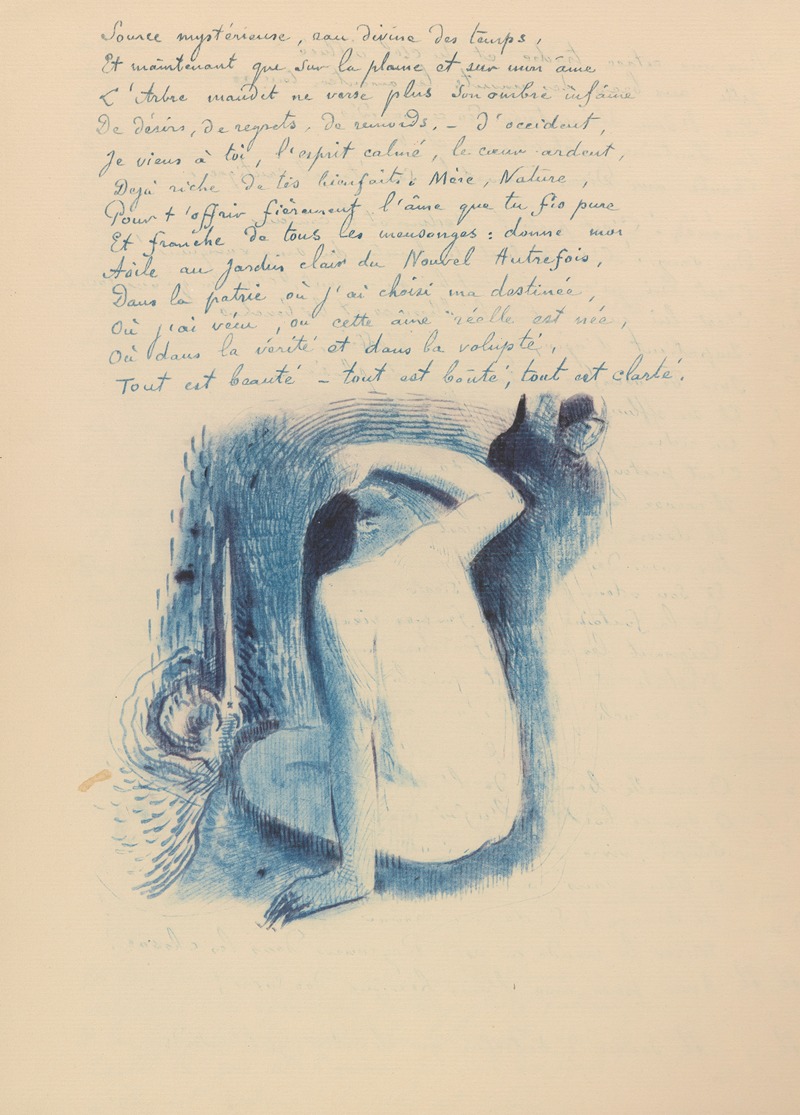 Source mystérieuse, eau divine des temps,
Et maintenant que sur la plaine et sur mon âme
L'Arbre maudit ne verse plus son ombre infâme
De désirs, de regrets, de remords, - d'occident,
Je viens à toi, l'esprit calmé, le cœur ardent,
Déjà riche de tes bienfaits, ô Mère, Nature,
Pour t'offrir fièrement l'âme que tu fis pure
Et franche de tous les mensonges: donne moi
Asile au Jardin clair du Nouvel Autrefois,
Dans la patrie, où j'ai choisi ma destinée,
Où j'ai vécu, où cette âme réelle est née,
Où dans la vérité et dans la volupté,
Tout est beauté - tout est bonté, tout est clarté.